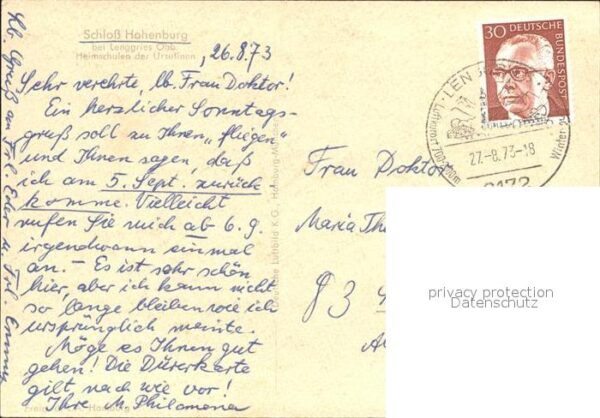 Schloß Hohenburg
bei Lenggries Obb.
Heimschulen der Ursulinen
, 26.8.73
Sehr verehrte, lb. Frau Doktor!
Ein herzlicher Sonntags-
gruß soll zu Ihnen „fliegen"
und Ihnen sagen, daß
ich am 5. Sept. zurück
komme. Vielleicht
rufen Sie mich ab 6.9.
irgendwann einmal
an. – Es ist sehr schön
hier, aber ich kann nicht
so lange bleiben wie ich
ursprünglich meinte.
Möge es Ihnen gut
gehen! Die Dürerkarte
gilt nach wie vor!
Ihre M. Philomena
Lb. Gruß an Frl. Eder u. Frl.
Deutsche Luftbild K.G., Hamburg
30 DEUTSCHE BUNDESPOST
LEN
Luftkurort 700-
Winter
27.-8.73-18
8172
Frau Doktor
Maria Th
83
privacy protection
Datenschutz